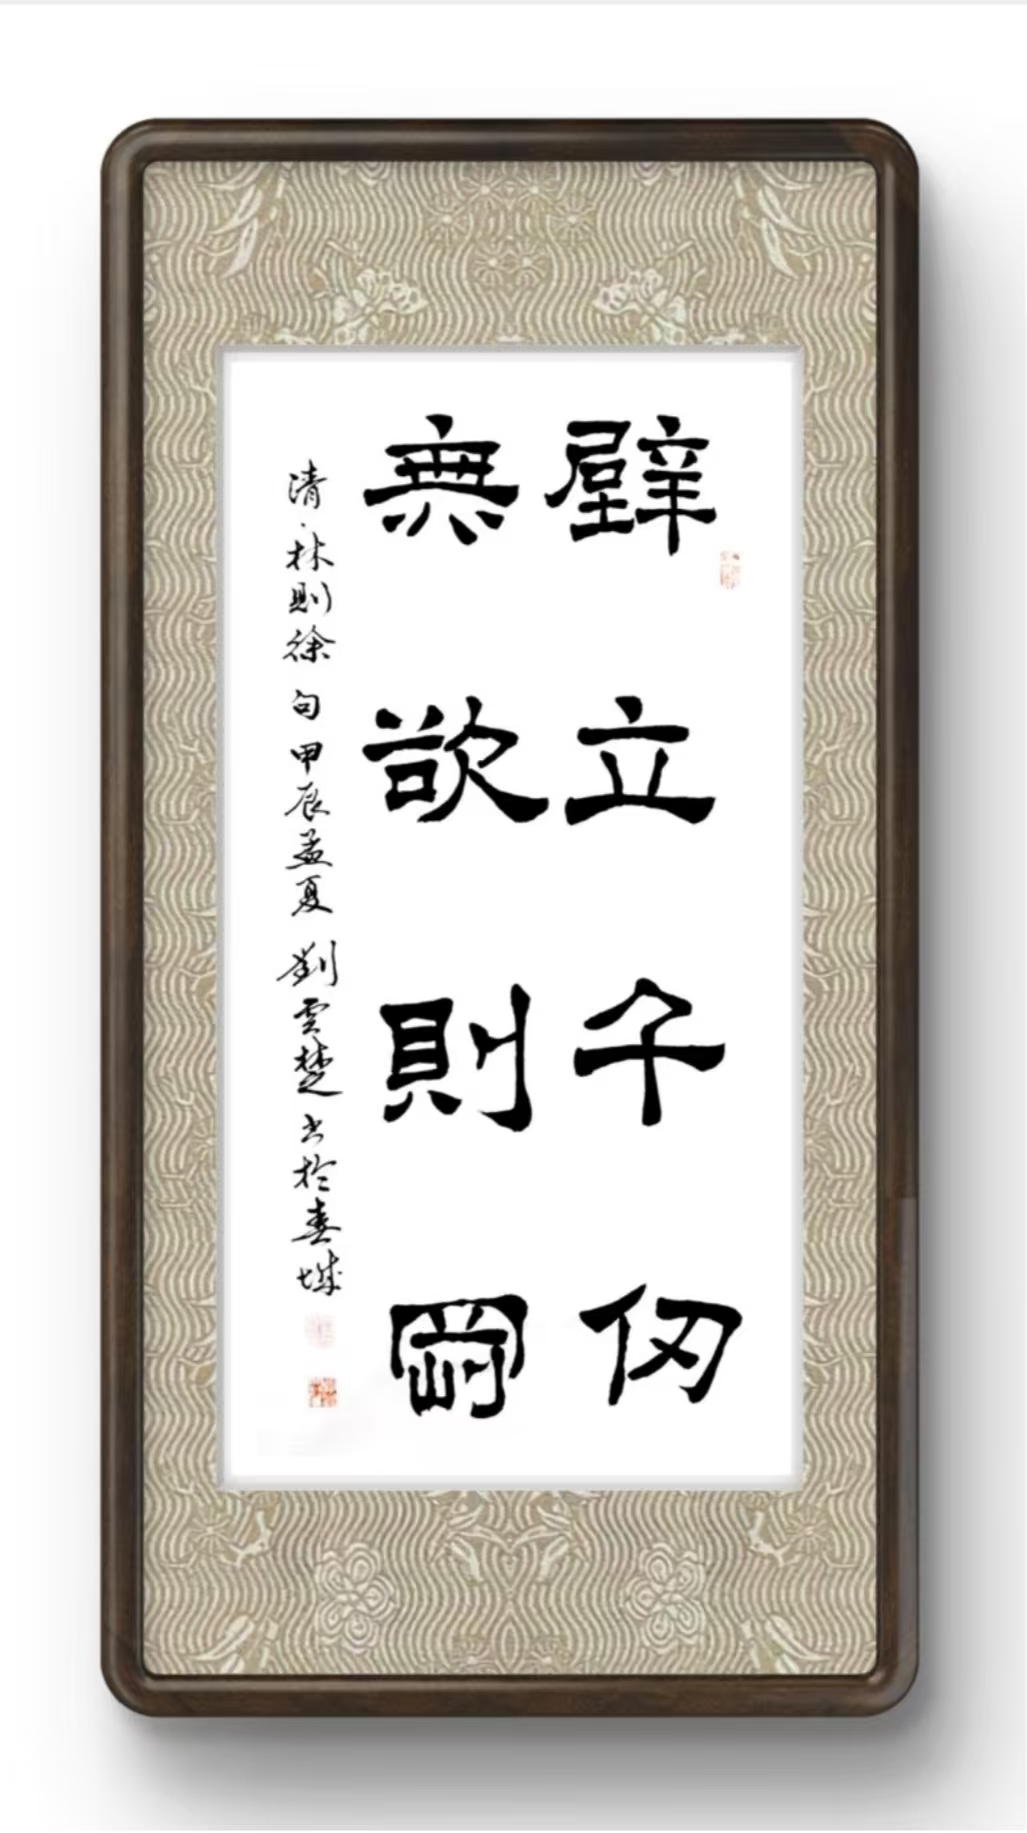 壁立千仞
無欲則剛
清·林則徐句甲辰孟夏劉雲楚书於春城